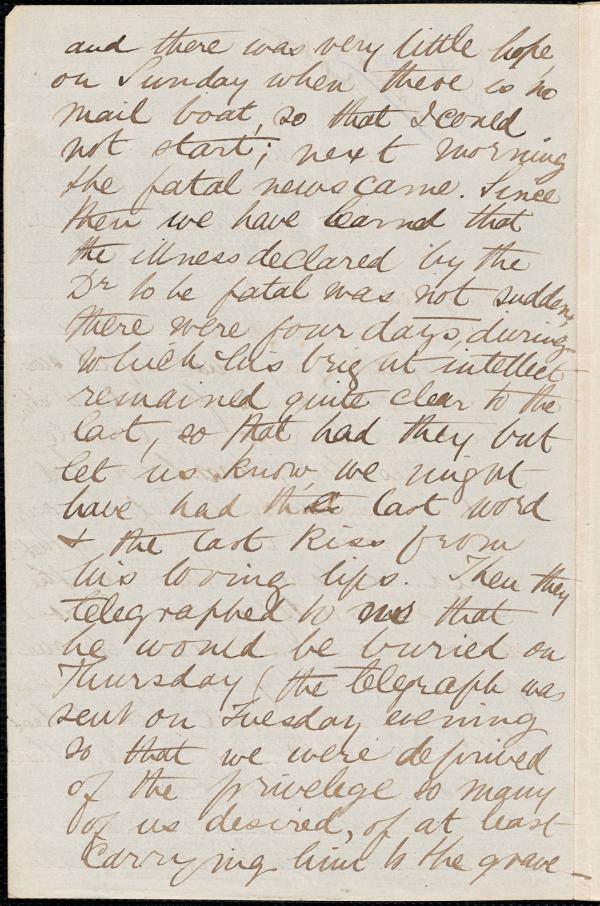 and there was very little hope
on Sunday when there is no
mail boat, so that I could
not start; next morning
the fatal news came. Since
then we have learnd that
the illness declared by the
Dr to be fatal was not sudden,
there were four days, during
which his bright intellect
remained quite clear to the
last, so that had they but
let us know, we might
have had the last word
& the last kiss from
his loving lips. Then they
telegraphed to us that
he would be buried on
Thursday (the telegraph was
sent on Tuesday evening
so that we were deprived
of the privelege so many
of us desired, of at least
Carrying him to the grave –